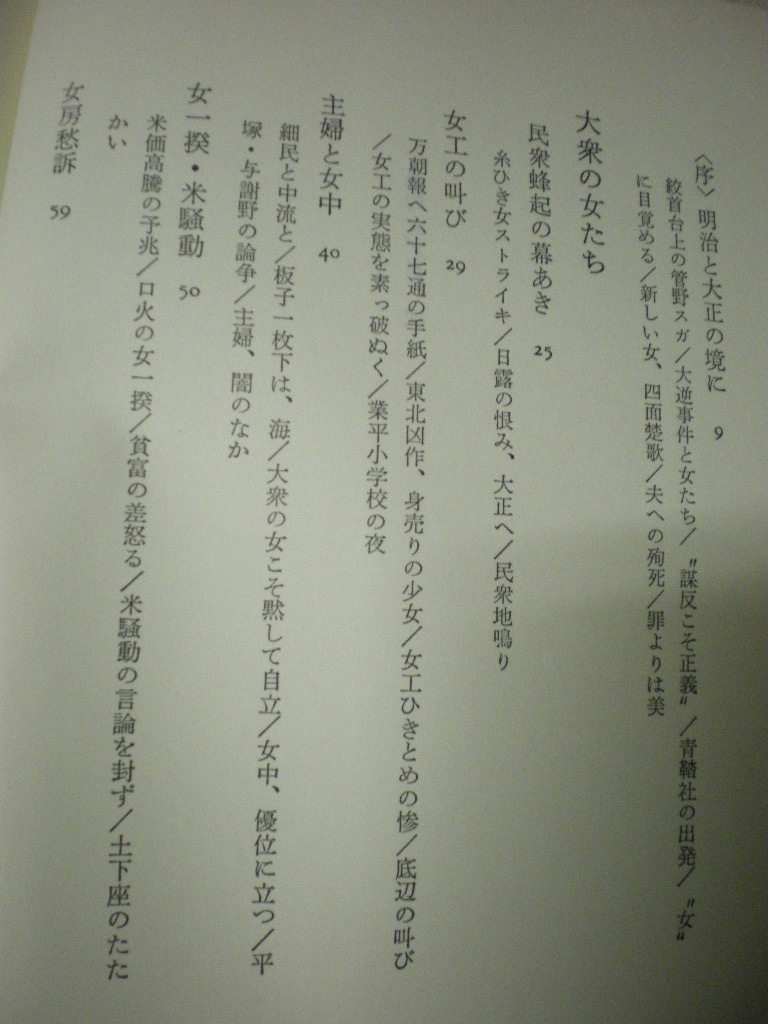 〈序〉明治と大正の境に 9
絞首台上の管野スガ／大逆事件と女たち／〝謀反こそ正義〟／青鞜社の出発／〝女〟
に目覚める／新しい女、四面楚歌／夫への殉死／罪よりは美
大衆の女たち
民衆蜂起の幕あき 25
糸ひき女ストライキ／日露の恨み、大正へ／民衆地鳴り
女工の叫び 29
万朝報へ六十七通の手紙／東北凶作、身売りの少女／女工ひきとめの惨／底辺の叫び
／女工の実態を素っ破ぬく／業平小学校の夜
主婦と女中 40
細民と中流と／板子一枚下は、海／大衆の女こそ黙して自立／女中、優位に立つ／平
塚・与謝野の論争／主婦、闇のなか
女一揆・米騒動 50
米価高騰の予兆／口火の女一揆／貧富の差怒る／米騒動の言論を封ず／土下座のたた
かい
女房愁訴 59